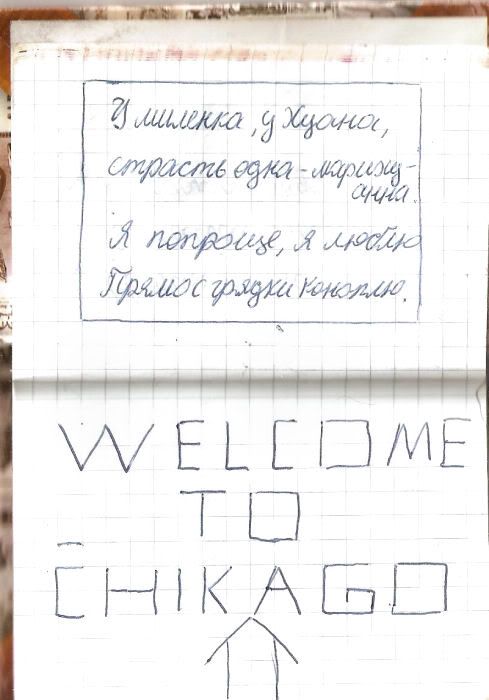 У миленка, у Хуана,
страсть одна - марижу-
анна.
Я попроще, я люблю
Прямо с грядки коноплю.
WELCOME
TO
CHIKAGO